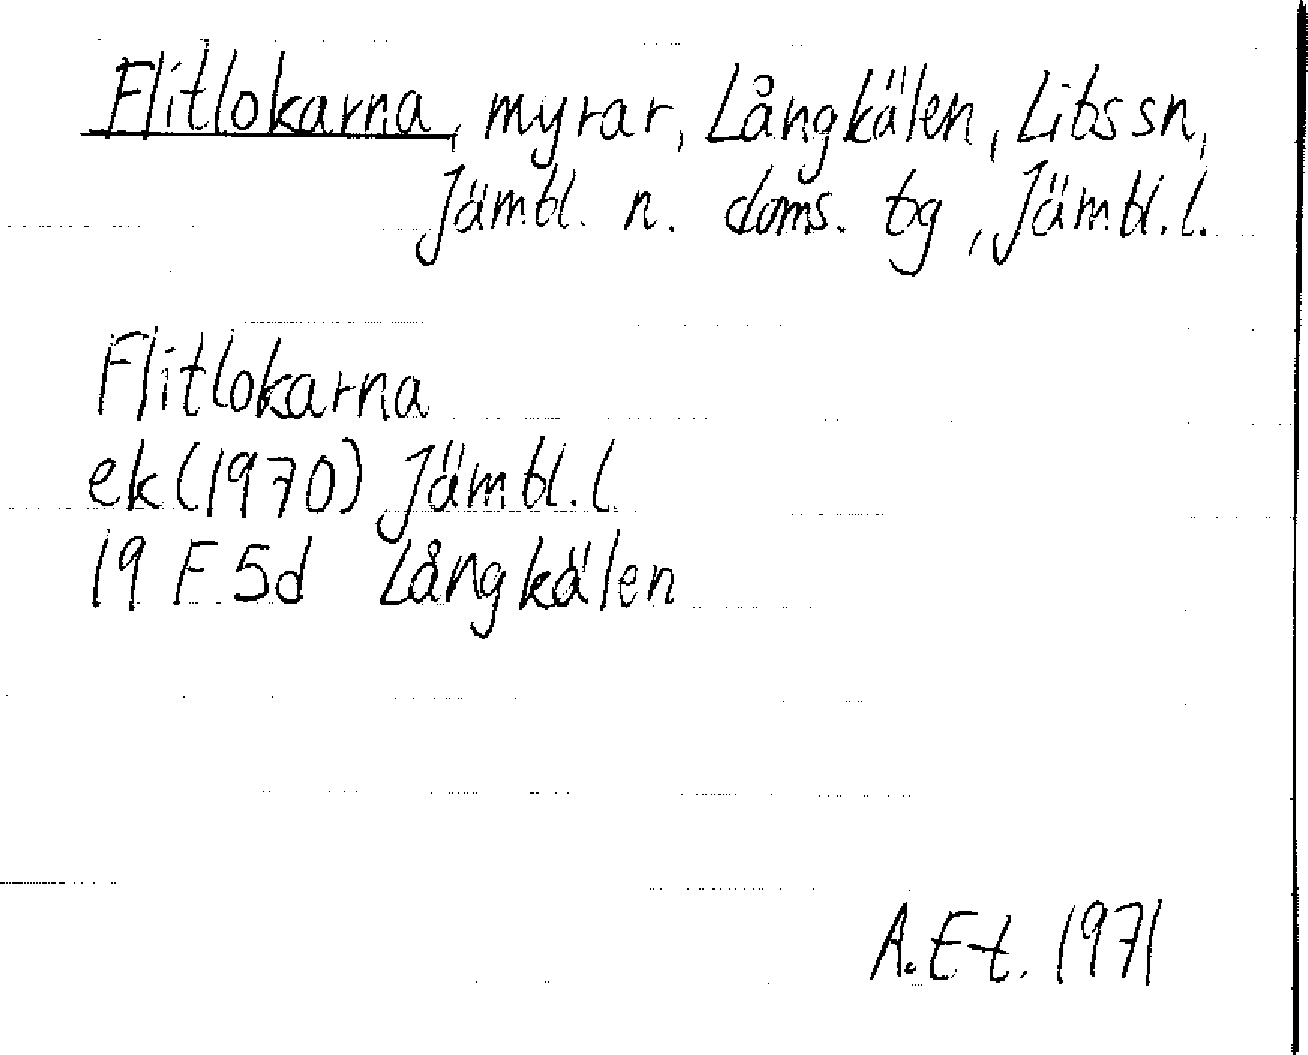 Flitlokarna, myrar, Långkälen, Lits sn,
Jämtl. n. doms. tg, Jämtl. l.
Flitlokarna
ek (1970) Jämtl. l
19 F 5d Långkälen
A. E-t. 1971